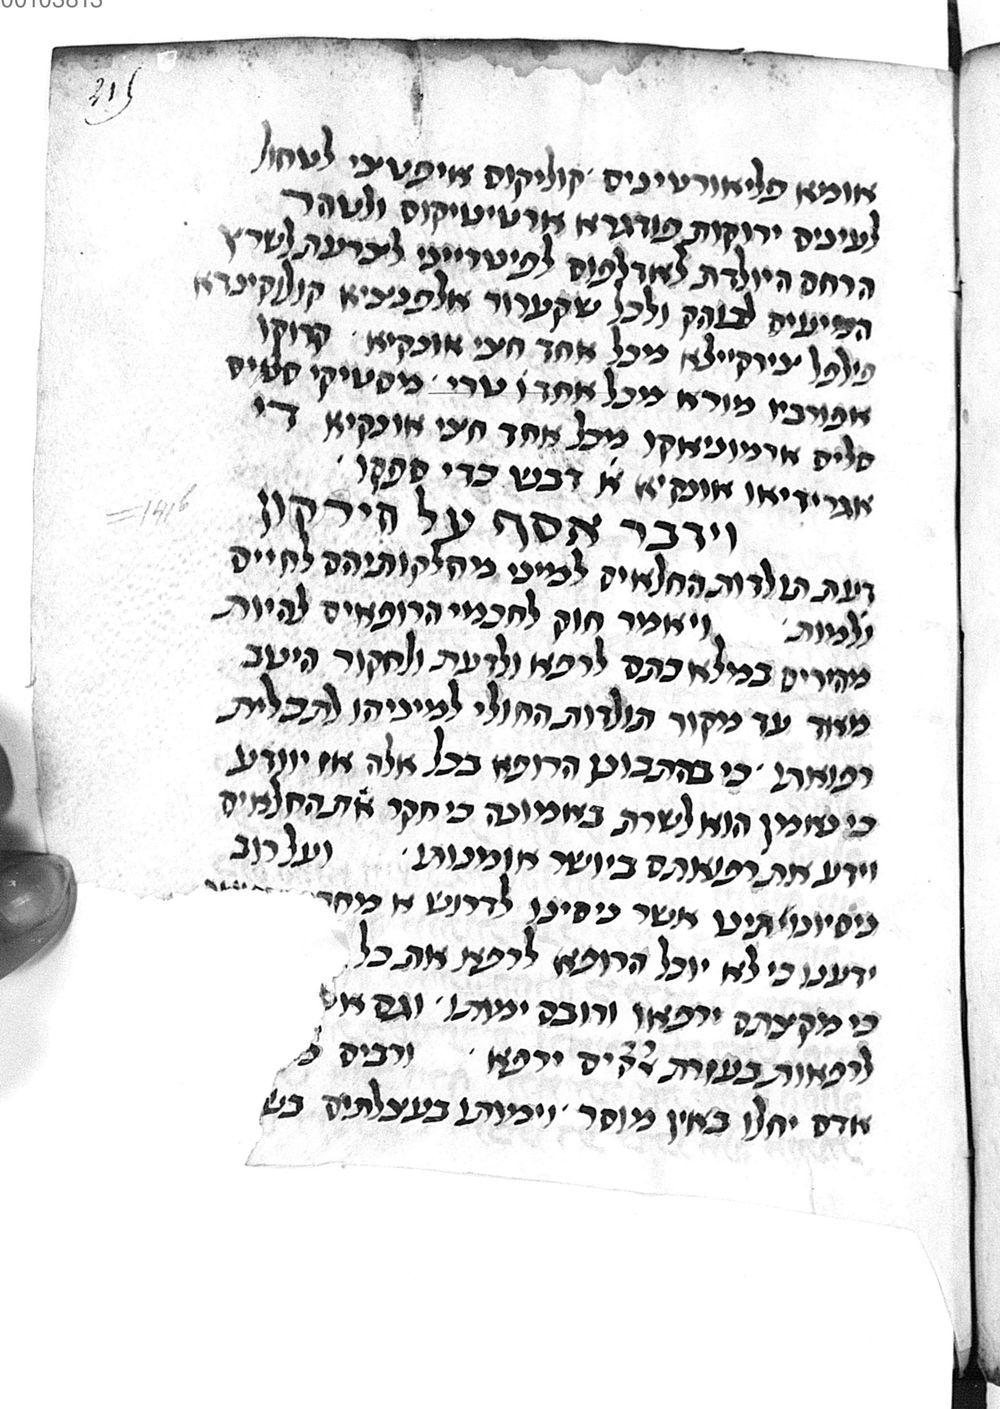 00103813
215
אומא פליאורטיניס קוליקוס איפטיצי לטחול
לעינים ירוקות פודגרא ארטיטיקוס ולטהר
הרחם היולדת לאדלפוס לפיטרייני לצרעת לשרץ
המיעים לבוהק ולכל שקערור אלפנציא קולוקינדא
פילפל צירקיילא מכל אחד חצי אונקיא קרוקו
אפורביו מורא מכל אחד ו טרי מסטיקי
סליס ארמוניאקו מכל אחד חצי אונקיא די
אגרידיאו אונקיא א דבש כדי ספקו
וידבר אסף על הירקון
=1416
דעת תולדות החלאים למיני מחלקותיהם לחיים
ולמות ויאמר חוק לחכמי הרופאים להיות
מהירים במלאכתם לרפא ולדעת ולחקור היטב
מאוד עד מקור תולדות החולי למיניהו לתכלית
רפואתו כי בהתבונן הרופא בכל אלה אז יוודע
כי נאמן הוא לשרת באמונה כי חקר את החלאים
וידע את רפואתם ביושר אומנותו ועל רוב
ניסיונותינו אשר ניסינו לדרוש א מחד
ידענו כי לא יוכל הרופא לרפא את כל
כי מקצתם ירפאו ורובם ימותו וגם
לרפאות בעזרת ירפא ורבים
אדם יחלו באין מוסר וימותו בעצלתים